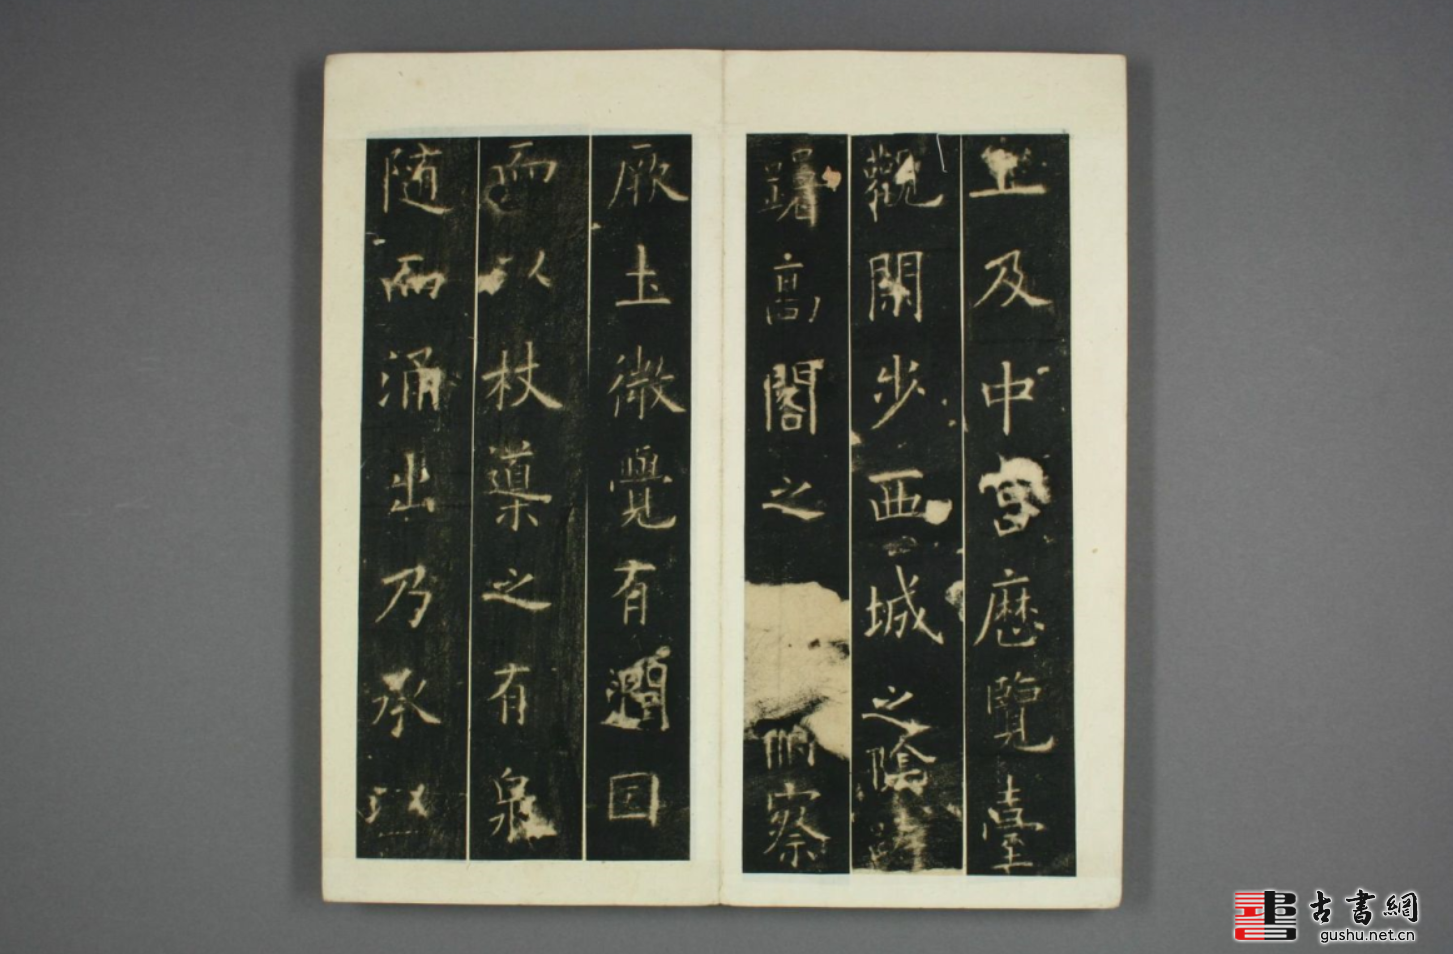 上及中宮歷覽臺
觀閑步西城之陰
躇高閣之俯察
厥土微覺有潤因
而以杖導之有泉
随而涌出乃承以
古書網
gushu.net.cn